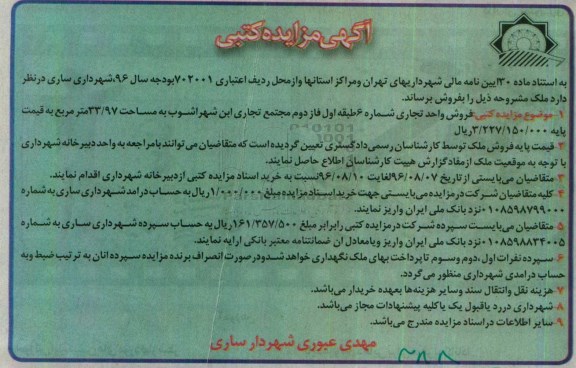 آگهی مزایده کتبی
به استناد ماده ۱۳۰ایین نامه مالی شهرداریهای تهران ومراکز استانها وازمحل ردیف اعتباری ۷۰۲۰۰۱بودجه سال ۹۶،شهرداری ساری درنظر
دارد ملک مشروحه ذیل را بفروش برساند.
۱- موضوع مزایده کتبی:فروش واحد تجاری شماره ۶طبقه اول فاز دوم مجتمع تجاری ابن شهراشوب به مساحت ۳۳/۹۷متر مربع به قیمت
پایه ۳/۲۲۷/۱۵۰/۰۰۰ریال
۲- قیمت پایه فروش ملک توسط کارشناسان رسمی دادگستری تعیین گردیده است که متقاضیان می‌توانند بامراجعه به واحد دبیرخانه شهرداری
با توجه به موقعیت ملک ازمفادگزارش هییت کارشناسان اطلاع حاصل نمایند.
۳- متقاضیان می‌بایستی از تاریخ ۹۶/۰۸/۰۷لغایت ۹۶/۰۸/۱۰نسبت به خرید اسناد مزایده کتبی ازدبیرخانه شهرداری اقدام نمایند.
۴- کلیه متقاضیان شرکت درمزایده می‌بایستی جهت خرید اسنادمزایده مبلغ ۱/۰۰۰/۰۰۰ریال به حساب درامد شهرداری ساری به شماره
۰۱۰۸۵۹۸۷۹۹۰۰۰نزد بانک ملی ایران واریز نمایند.
۵- متقاضیان می‌بایست سپرده شرکت درمزایده کتبی رابرابر مبلغ ۱۶۱/۳۵۷/۵۰۰ریال به حساب سپرده شهرداری ساری به شماره
۰۱۰۸۵۹۸۸۳۴۰۰۵نزد بانک ملی ایران واریز ویامعادل ان ضمانتنامه معتبر بانکی ارایه نمایند.
۶- سپرده نفرات اول،دوم وسوم تا پرداخت بهای ملک نگهداری خواهد شدودر صورت انصراف برنده مزایده سپرده انان به ترتیب ضبط وبه
حساب درامدی شهرداری منظور می‌گردد.
۷- هزینه نقل وانتقال سند وسایر هزینه‌ها بعهده خریدار می‌باشد.
۸- شهرداری دررد یاقبول یک یاکلیه پیشنهادات مجاز می‌باشد.
۹- سایر اطلاعات دراسناد مزایده مندرج می‌باشد.
مهدی عبوری شهردار ساری